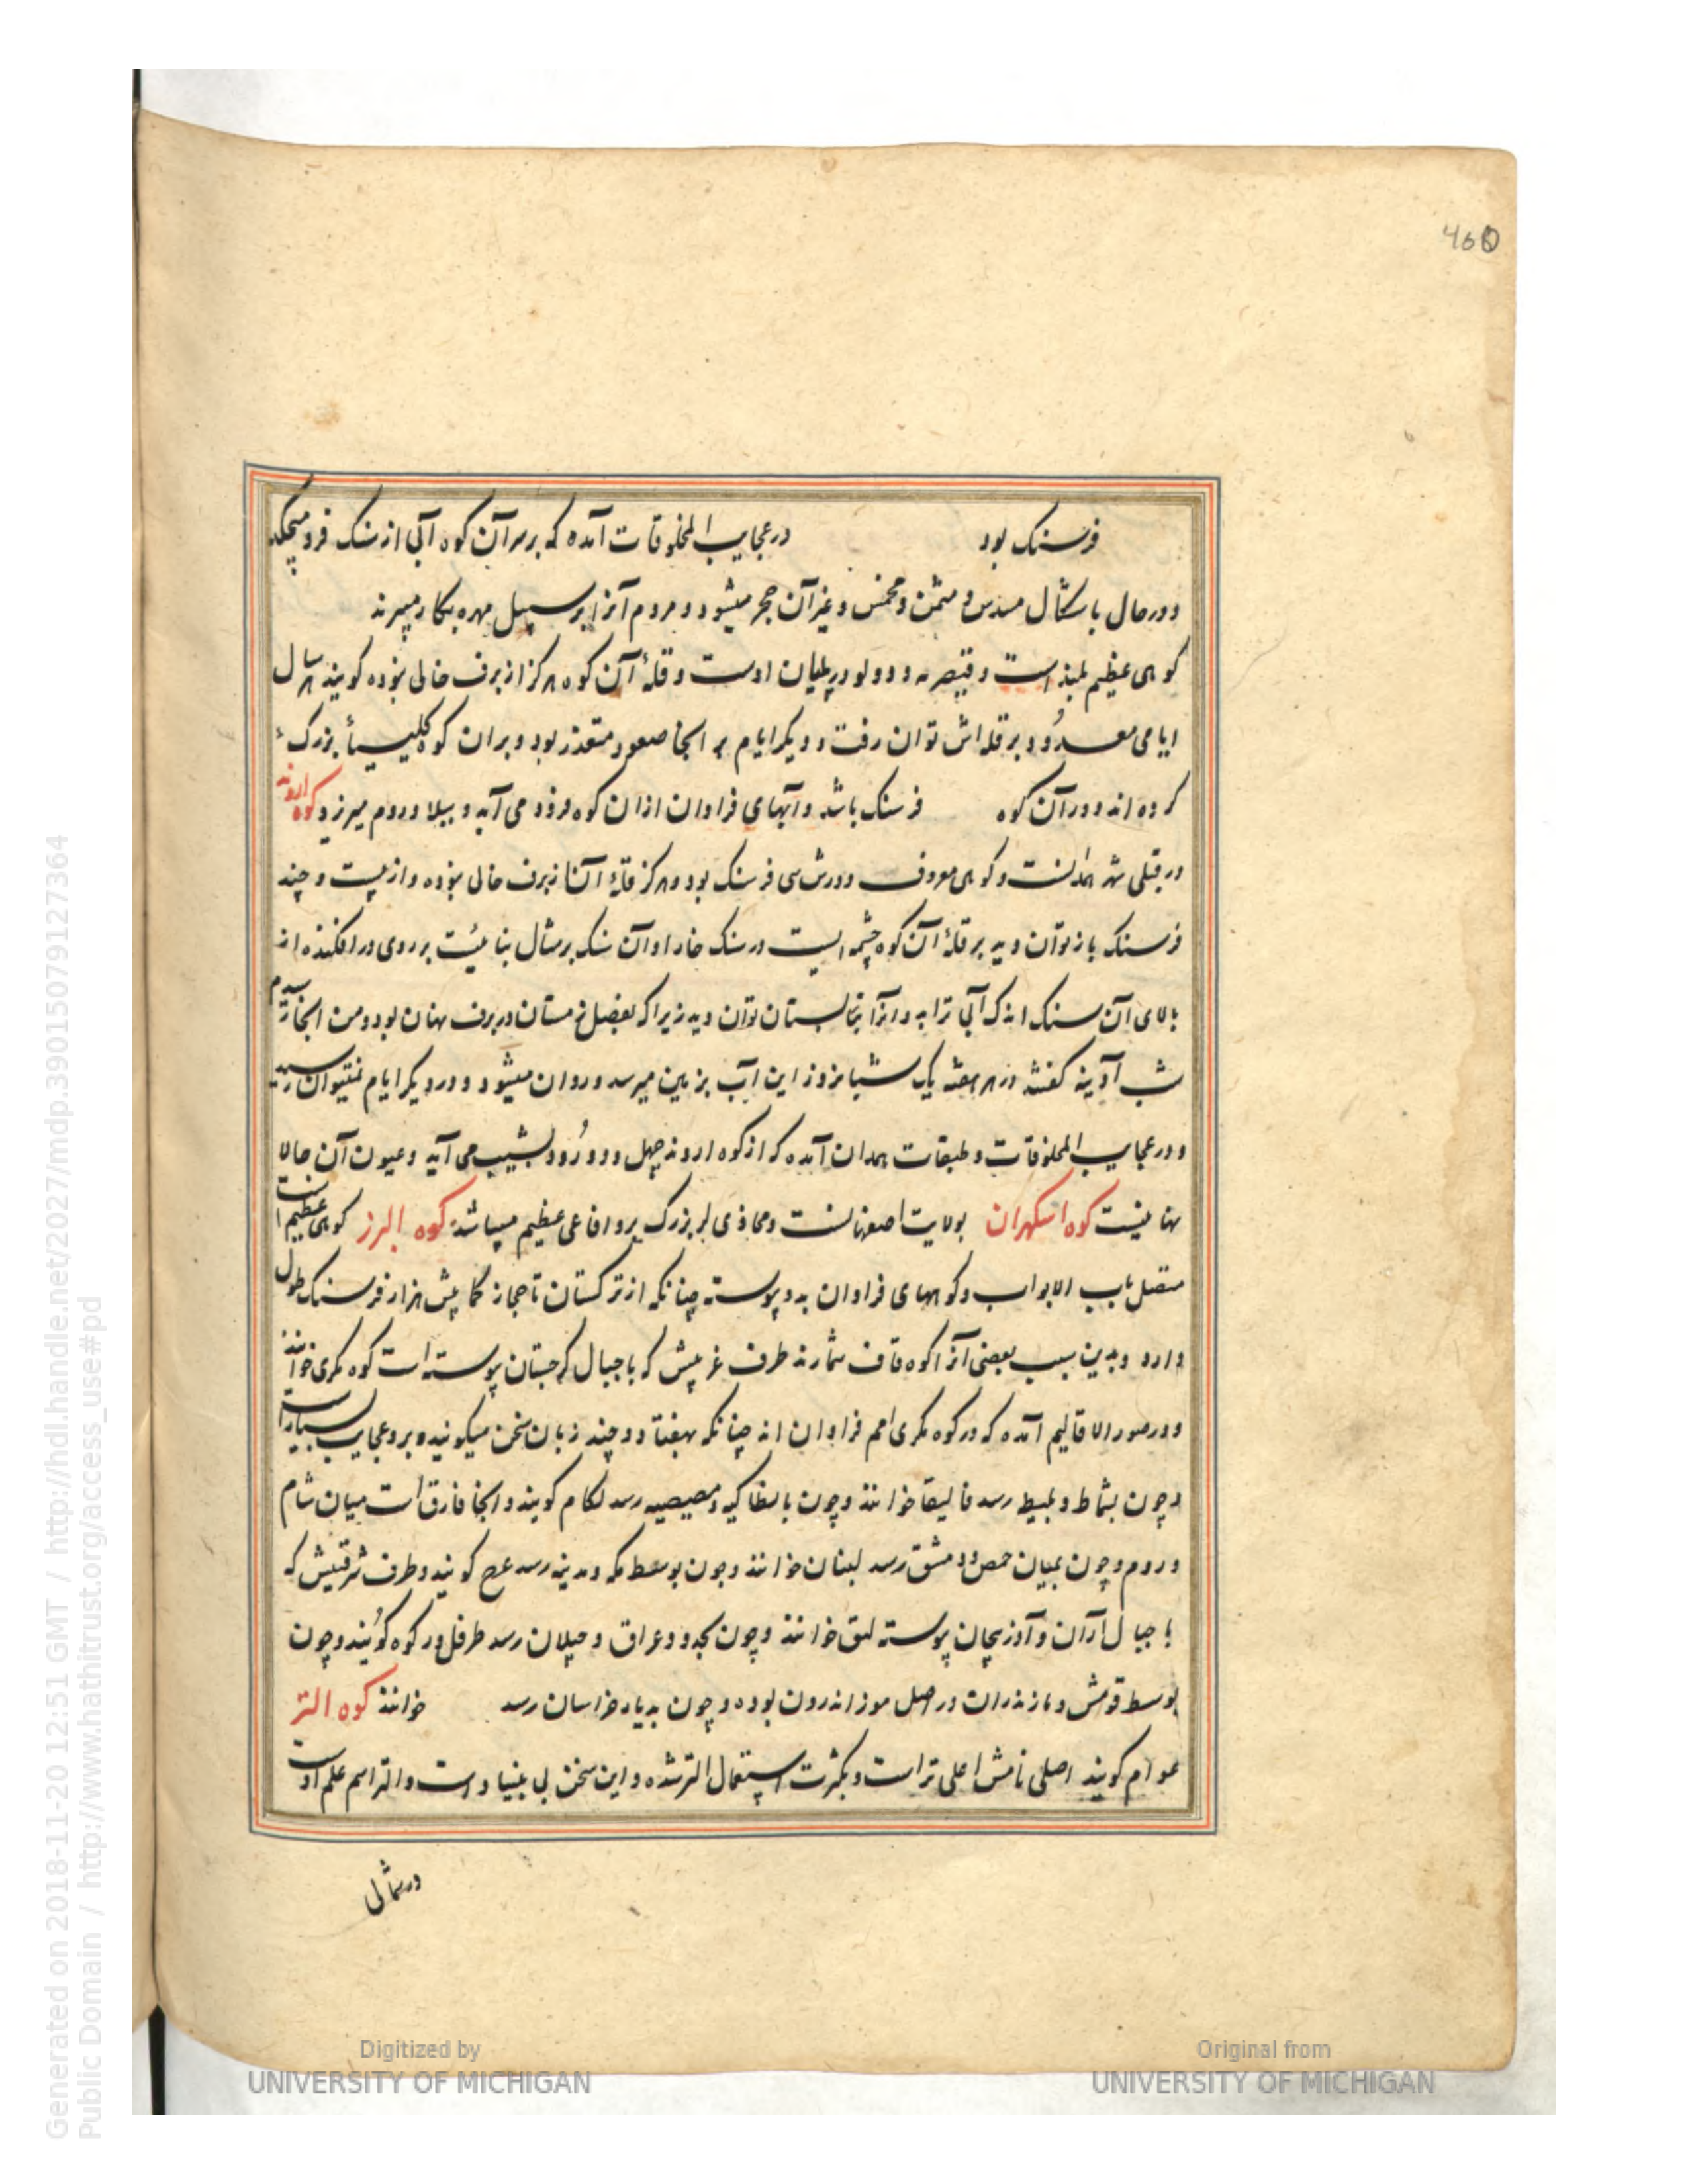 460
فرسنک بود در عجایب المخلوقات آمده که بر سر آن کوه آبی از سنک فرو میچکد
و در حال باشکال مسدس و مثمن و مخمس و غیر آن حجر میشود و مردم آنرا بر سبیل مهره بکار میبرند
کوهی عظیم بلندست و قیصریه و دولو در پلیان اوست و قلهٔ آن کوه هرکز از برف خالی نبوده کویند هر سال
ایامی معدود بر قله اش توان رفت و دیکر ایام بر انجا صعود متعذر بود و بران کوه کلیسیأ بزرک
کرده اند و در آن کوه فرسنک باشد و آبهای فراوان ازان کوه فرود می آید و ببلاد روم میرزد کوه اروند
در قبلی شهر همدانست و کوهی معروف دورش سی فرسنک بود و هرکز قلهٔ آن از برف خالی نبوده و از بیست و چند
فرسنک باز توان دید بر قلهٔ آن کوه چشمه ایست در سنک خارا و آن سنک بر مثال بنائیست بر روی در افکنده اند
بالای آن سنک اندک آبی ترابد و انرا بتابستان توان دید زیرا که بفصل زمستان در برف پنهان بود و من انجا رسیدم
شب آدینه کفتند در هر هفته یک شبانروز این آب بزمین میرسد و روان میشود و در دیکر ایام نمیتوان رسید
و در عجایب المخلوقات و طبقات همدان آمده که از کوه اروند چهل و دو رود بشیب می آید و عیون آن حالا
پنهانیست کوه اسکهران بولایت اصفهانست و محاذی لر بزرک برو افاعی عظیم میباشد کوه البرز کوهی عظیم است
متصل باب الابواب و کوههای فراوان بدو پیوسته چنانکه از ترکستان تا حجاز کمابیش هزار فرسنک طول
دارد و بدین سبب بعضی آنرا کوه قاف شمارند طرف غربیش که با جبال کرجستان پیوسته است کوه لکزی خوانند
و در صور الاقالیم آمده که در کوه لکزی امم فراوان اند چنانکه بهفتاد و چند زبان سخن میکویند و برو عجایب بسیار است
و چون بشماط و بلمیط رسد قالیقا خوانند و چون بانطاکیه و مصیصیه رسد لکام کویند و انجا فارق است میان شام
و روم و چون بمیان حمص و دمشق رسد لبنان خوانند و چون بوسط مکه و مدینه رسد عرج کویند و طرف شرقیش که
با جبال آران و آذربیجان پیوسته لبق خوانند و چون بحدود عراق و جیلان رسد طرفل در کوه کویند و چون
بوسط قومش و مازندران در اصل موز اندرون بوده و چون بدیار خراسان رسد خوانند کوه التر
عوام کویند اصلی نامش اعلی تر است و بکثرت استعمال التر شده و این سخن بی بنیاد است و التر اسم علم اوست
در شمالی
Digitized by
UNIVERSITY OF MICHIGAN
Original from
UNIVERSITY OF MICHIGAN
Generated on 2018-11-20 12:51 GMT / http://hdl.handle.net/2027/mdp.39015079127364
Public Domain / http://www.hathitrust.org/access_use#pd